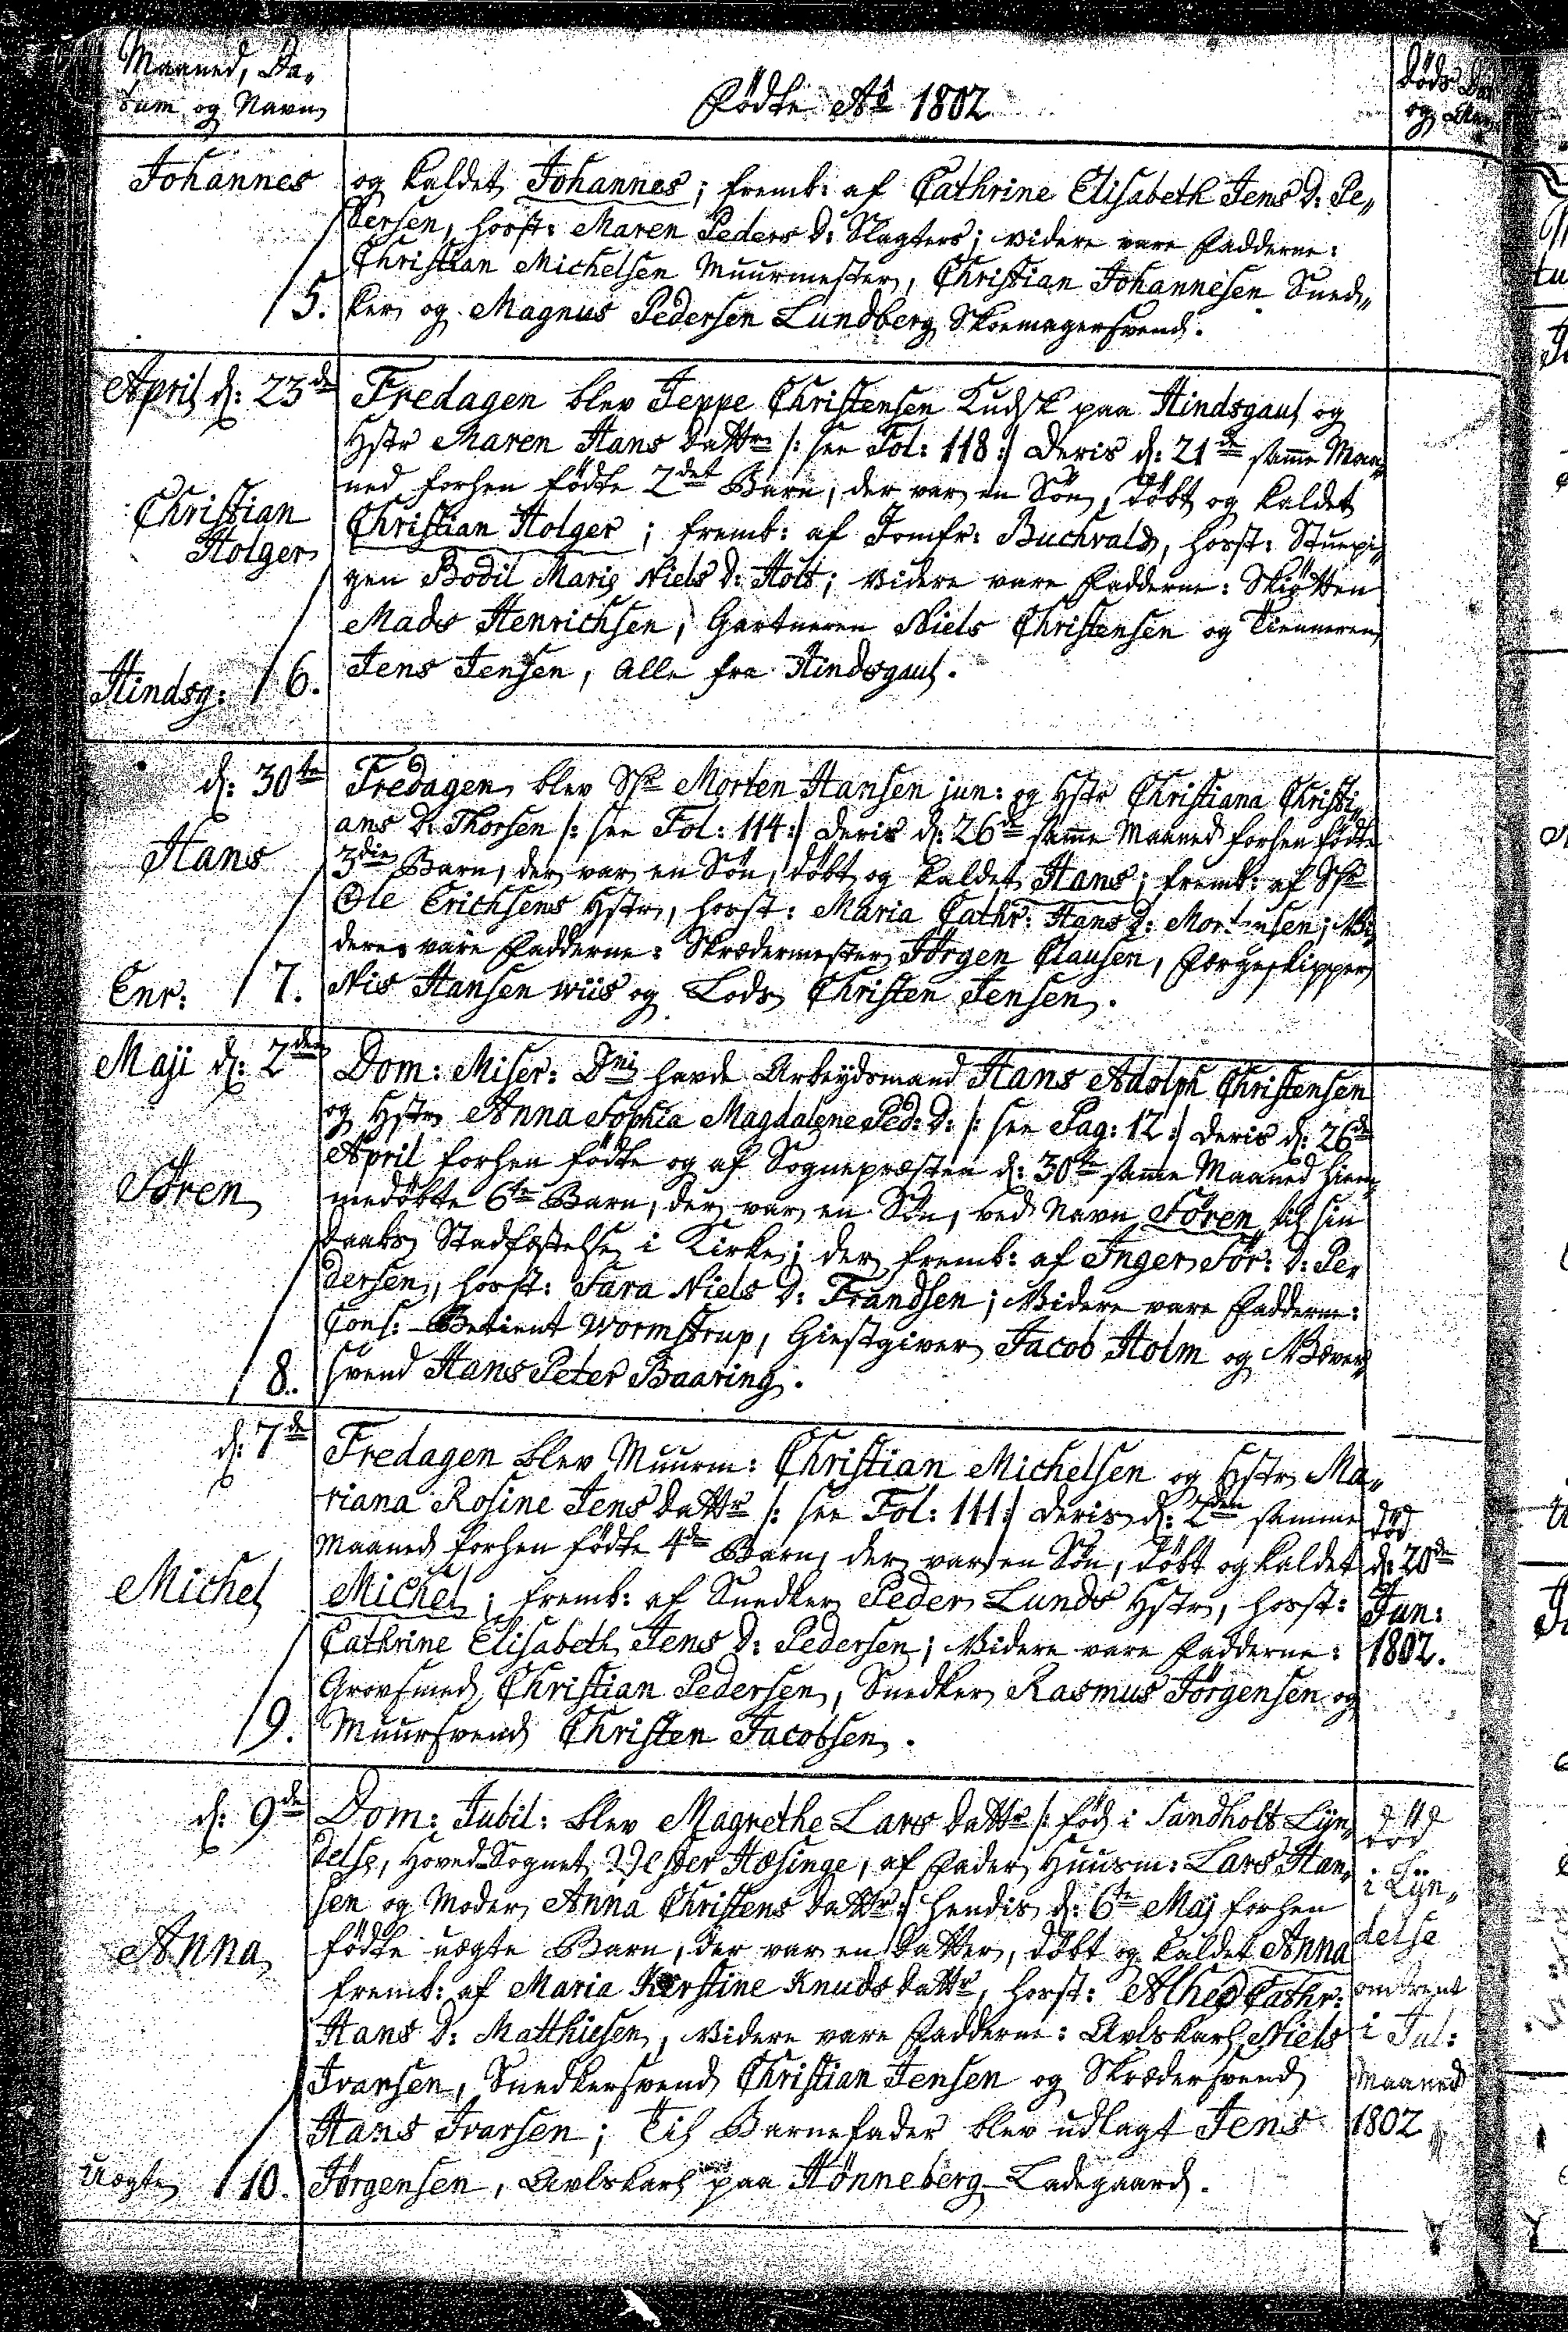 Maaned, Da„
tum og Navn
Fødte Aº 1802
Døds Da
og
Johannes
15.
og kaldet Johannes; fremb: af Cathrine Elisabeth Jens D: Pe„
dersen, hosst: Maren Peders D: Slagters; videre vare Fadderne:
Christian Michelsen Muurmester, Christian Johannesen Sned„
ker og Magnus Pedersen Lundberg Skoemagersvend.
April d: 23de
Christian
Holger
Hindsg: 16.
Fredagen blev Jeppe Christensen Kudsk paa Hindsgaul og
Hstr Maren Hans Dattr /: see Fol: 118 :/ deris d: 21de samme Maa„
ned forhen fødte 2det Barn, der var en Søn, døbt og kaldet
Christian Holger; fremb: af Jomfr: Buchvald, hosst: Stuepi„
gen Bodil Marie Niels D: Holt; Videre vare Fadderne: Skiøtten
Mads Henrichsen, Gartneren Niels Christensen og Tienneren
Jens Jensen, alle fra Hindsgaul.
d: 30te
Hans
Enr: 17.
Fredagen blev Skr Morten Hansen jun: og Hstr Christiana Christi„
ans D: Thorsen /: see Fol: 114 :/ deris d: 26de samme Maaned forhen fødte
3die Barn, der var en Søn, døbt og kaldet Hans; fremb: af Skr
Ole Erichsens Hstr, hosst: Maria Cathr: Hans D: Mortensen; Vi„
dere vare Fadderne: Skrædermester Jørgen Clausen, Færgeskipper
Nis Hansen wiis og Lods Christen Jensen.
Maji d: 2den
Søren
18.
Dom: Miser: Dni havde Arbeydsmand Hans Adolph Christensen
og Hstr Anna Sophia Magdalene Ped: D: /: see Pag: 12 :/ deris d: 26de
April forhen fødte og af Sognepræsten d: 30te samme Maaned hiem„
medøbte 6te Barn, der var en Søn, ved Navn Søren til sin
Daabs Stadfæstelse i Kirke; der fremb: af Inger Sør: D: Pe„
dersen, hosst: Sara Niels D: Frandsen; Videre vare Fadderne:
Cons: Betient Wormstrup, Giestgiver Jacob Holm og Væver„
svend Hans Peter Baaring.
d: 7de
Michel
19.
Fredagen blev Muurm: Christian Michelsen og Hstr Ma„
riana Rosine Jens Dattr /: see Fol: 111 :/ deris d: 2den samme
Maaned forhen fødte 4de Barn, der var en Søn, døbt og kaldet
Michel; fremb: af Snedker Peder Lunds Hstr, hosst:
Cathrine Elisabeth Jens D: Pedersen; Videre vare Fadderne:
Grovsmed Christian Pedersen, Snedker Rasmus Jørgensen og
Muursvend Christen Jacobsen.
død
d: 20de
Jun:
1802.
d: 9de
Anna
Uægte 110.
Dom: Jubil: blev Magrethe Lars Dattr /: fød i Sandholts Lyn„
delse, Hoved-Sognet Vester Hæsinge, af Fader Huusm: Lars Han„
sen og Moder Anna Christens Dattr :/ hendis d: 6te Maj forhen
fødte uægte Barn, der var en Datter, døbt og kaldet Anna
fremb: af Maria Kirstine Knuds Dattr, hosst: Alhed Cathr:
Hans D: Matthiesen, Videre vare Fadderne: Avlskarl Niels
Ivarsen, Snedkersvend Christian Jensen og Skrædersvend
Hans Ivarsen; Til Barnefader blev udlagt Jens
Jørgensen, Avlskarl paa Hønneberg-Ladegaard.
død
i Lyn„
delse
omtrent
i Jul:
Maaned
1802